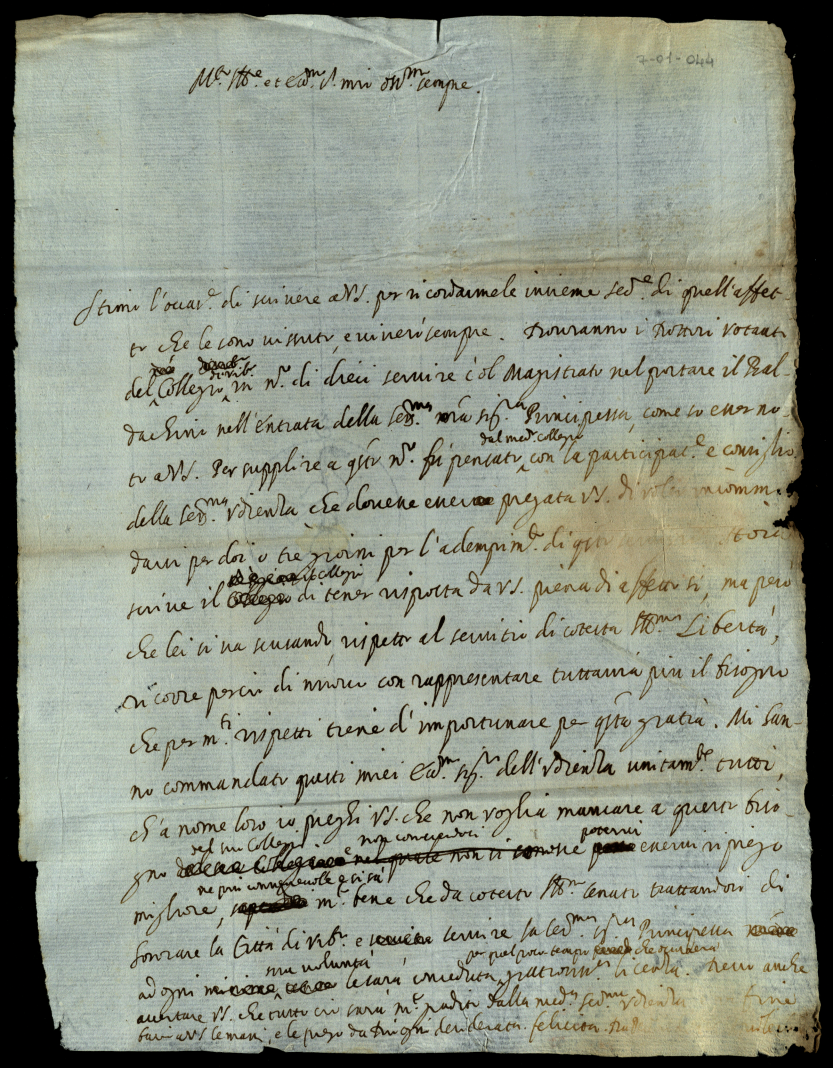 7-01-044
M.to Ill.re et Ecc.mo S.r mio oss.mo sempre.
Stimo l'occas.e di scrivere a VS. per ricordarmele insieme ser.e di quell'affet-
to che le sono vissuto, e viverò sempre. Dovranno i Dottori votanti
del Collegio di Urb.o in n.o di dieci servire col Magistrato nel portare il Bal-
dachino nell'entrata della ser.ma nra sig.ra Principessa, come so esser no-
to a VS. Per supplire a q.sto n.o fu pensato dal med.o collegio con la participat.e e consiglio
della ser.ma Udienza che dovesse essere pregata VS. di voler incomm.o-
darsi per doi o tre giorni per l'adempim.to di q.sto
scrive il Collegio di tener risposta da VS. piena di affetto sì, ma però
che lei si va scusando, rispetto al servitio di cotesta Ill.ma Libertà,
ricorre perciò di nuovo con rappresentare tuttavia più il bisogno
che per m.ti rispetti tiene d'importunare per q.sta gratia. Mi han-
no commandato questi miei Ecc.mi sig.ri dell'Udienza unitam.te tutti,
ch'a nome loro io preghi VS. che non voglia mancare a questo biso-
gno del suo Collegio e non conoscendosi potervi esservi ripiego
migliore, ne più convenevolle e si sa m.to bene che da cotesto Ill.mo Senato trattandosi di
honorare la Città di Urb.o e servire la ser.ma sig.ra Principessa
ad ogni sua voluntà le sarà conceduta per quel poco tempo che occorrerà gratiosiss.a licenza. Devo anche
accertare VS. che tutto ciò sarà m.to gradito dalla med.a ser.ma Udienza fine
bacio a VS. le mani, e le prego da Dio ogni desiderata felicità.